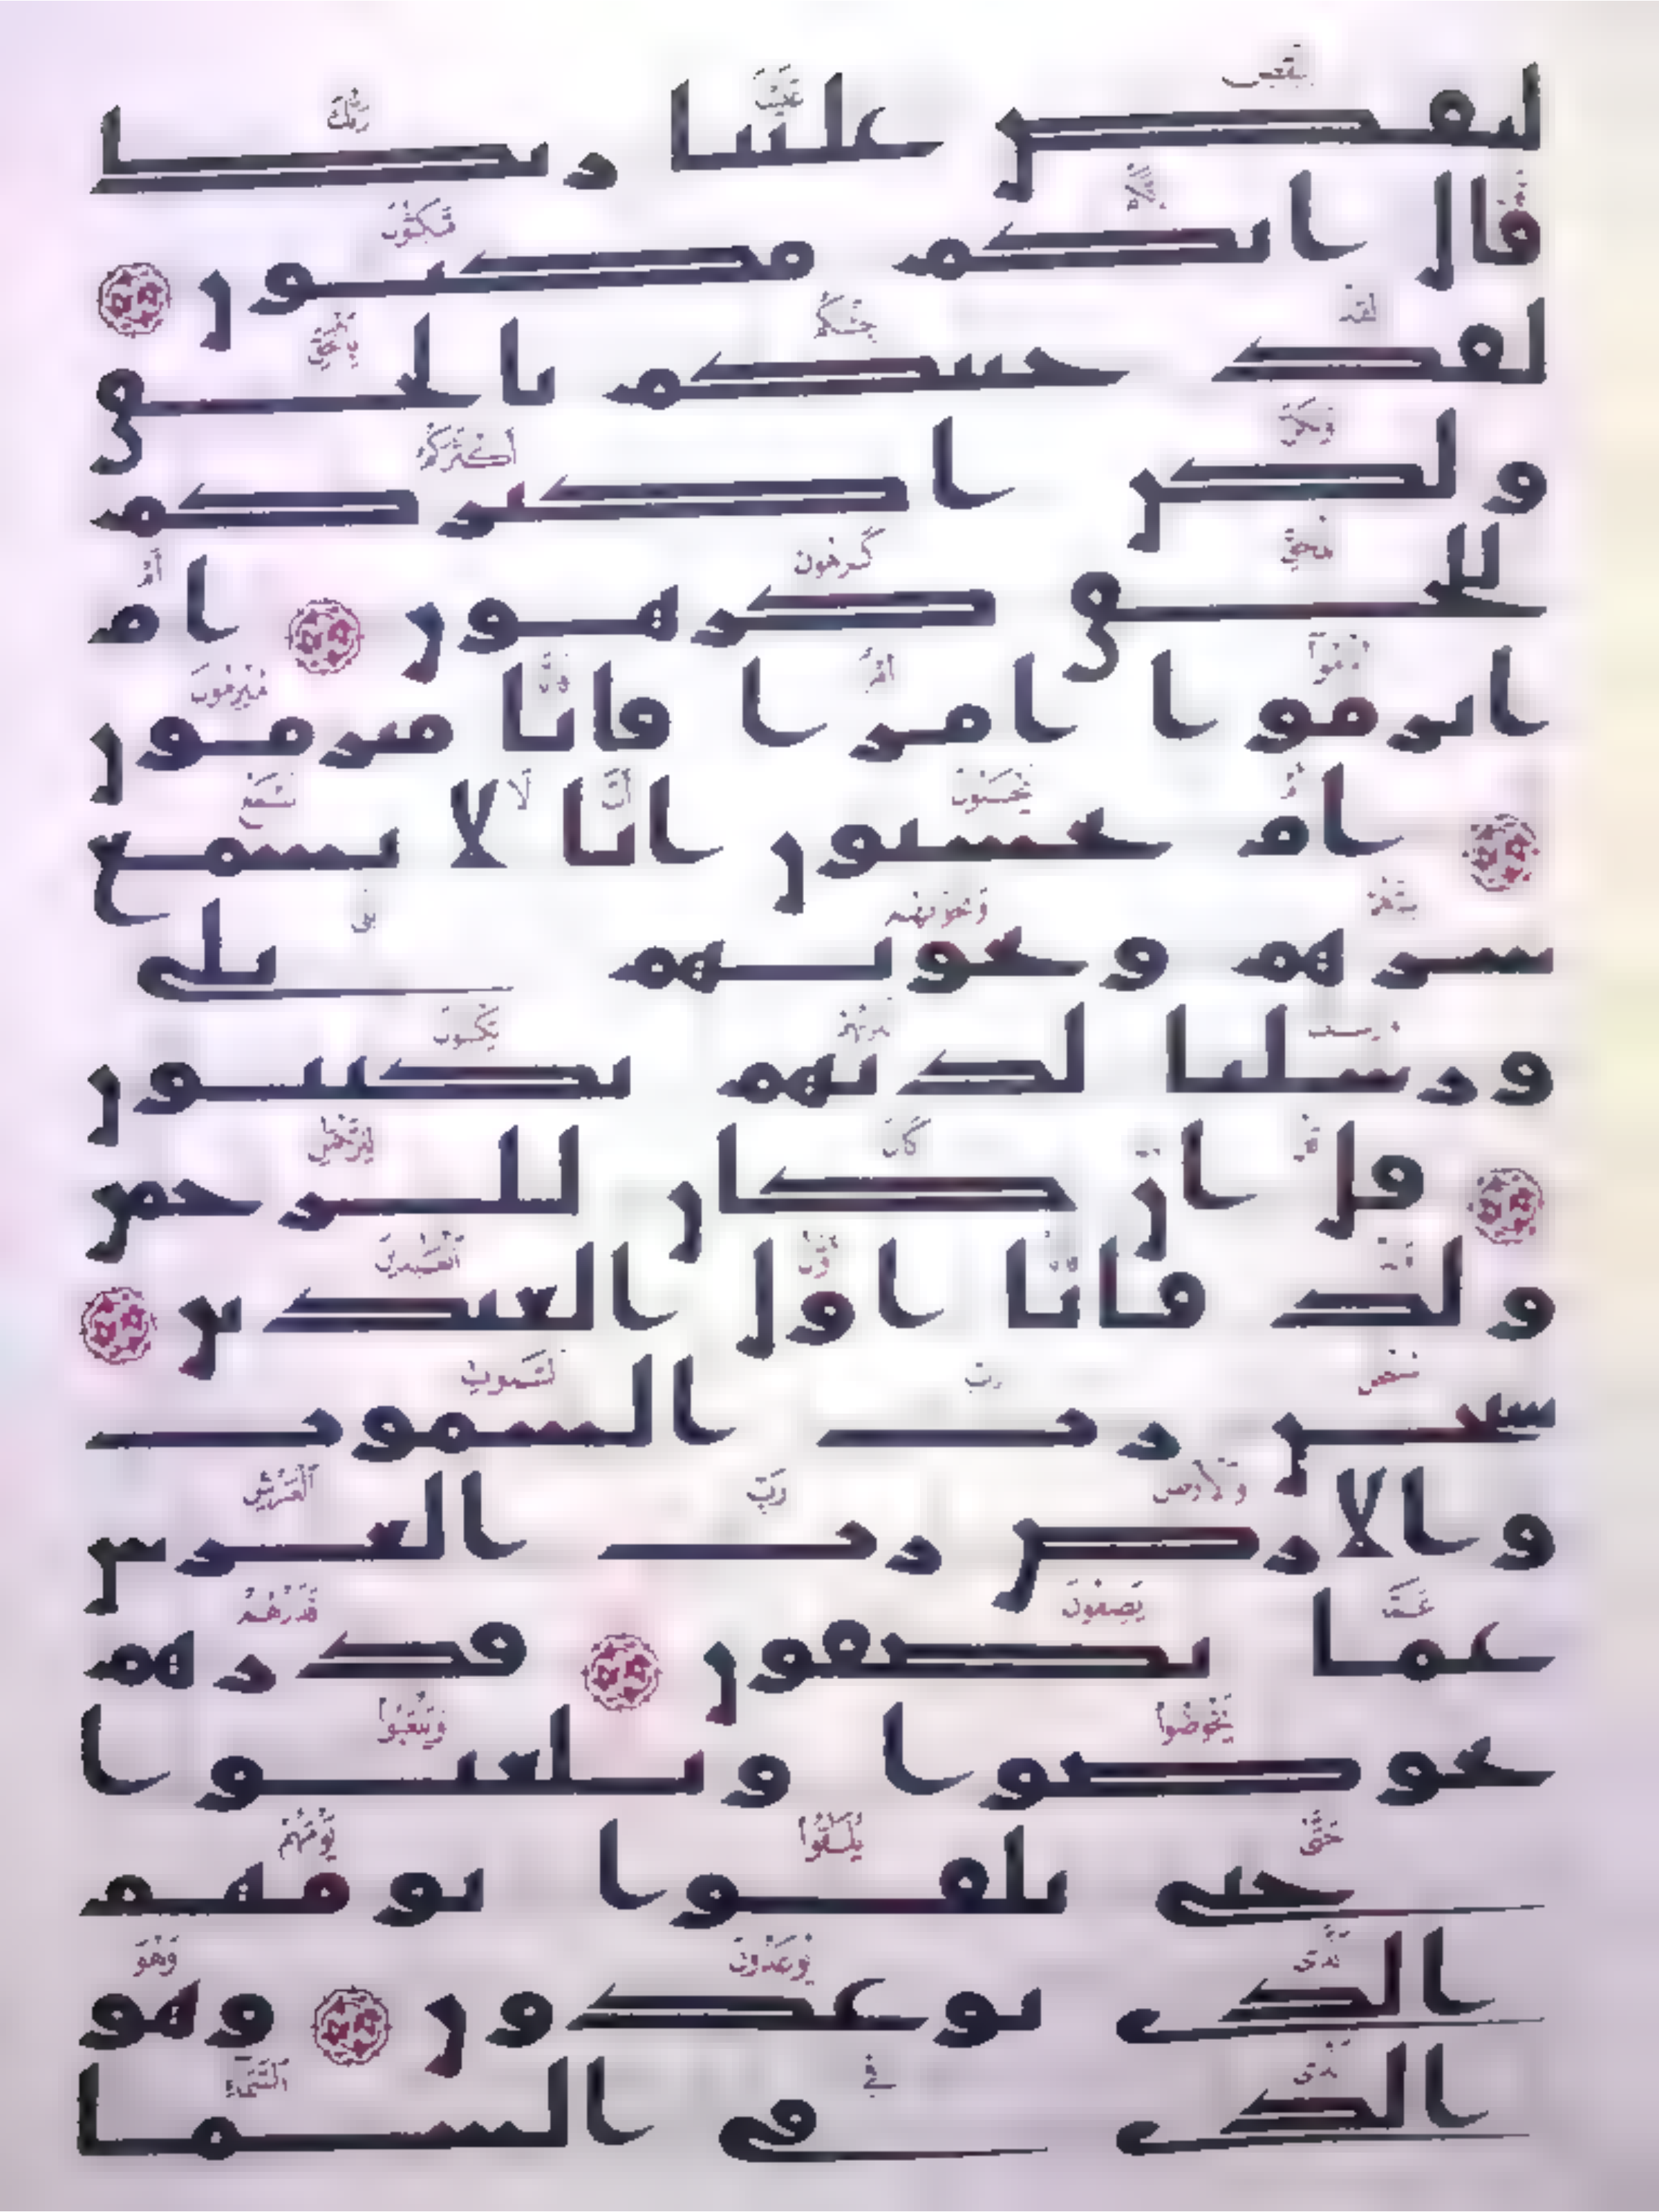 ليقض علينا ربك
قال انكم مكثون
لقد جئنكم بالحق
ولكن اكثركم
للحق كرهون ام
ابرموا امرا فانا مبرمون
ام يحسبون انا لا نسمع
سرهم ونجويهم بلى
ورسلنا لديهم يكتبون
قل ان كان للرحمن
ولد فانا اول العبدين
سبحن رب السموت
والارض رب العرش
عما يصفون فذرهم
يخوضوا ويلعبوا
حتى يلقوا يومهم
الذى يوعدون وهو
الذى فى السما